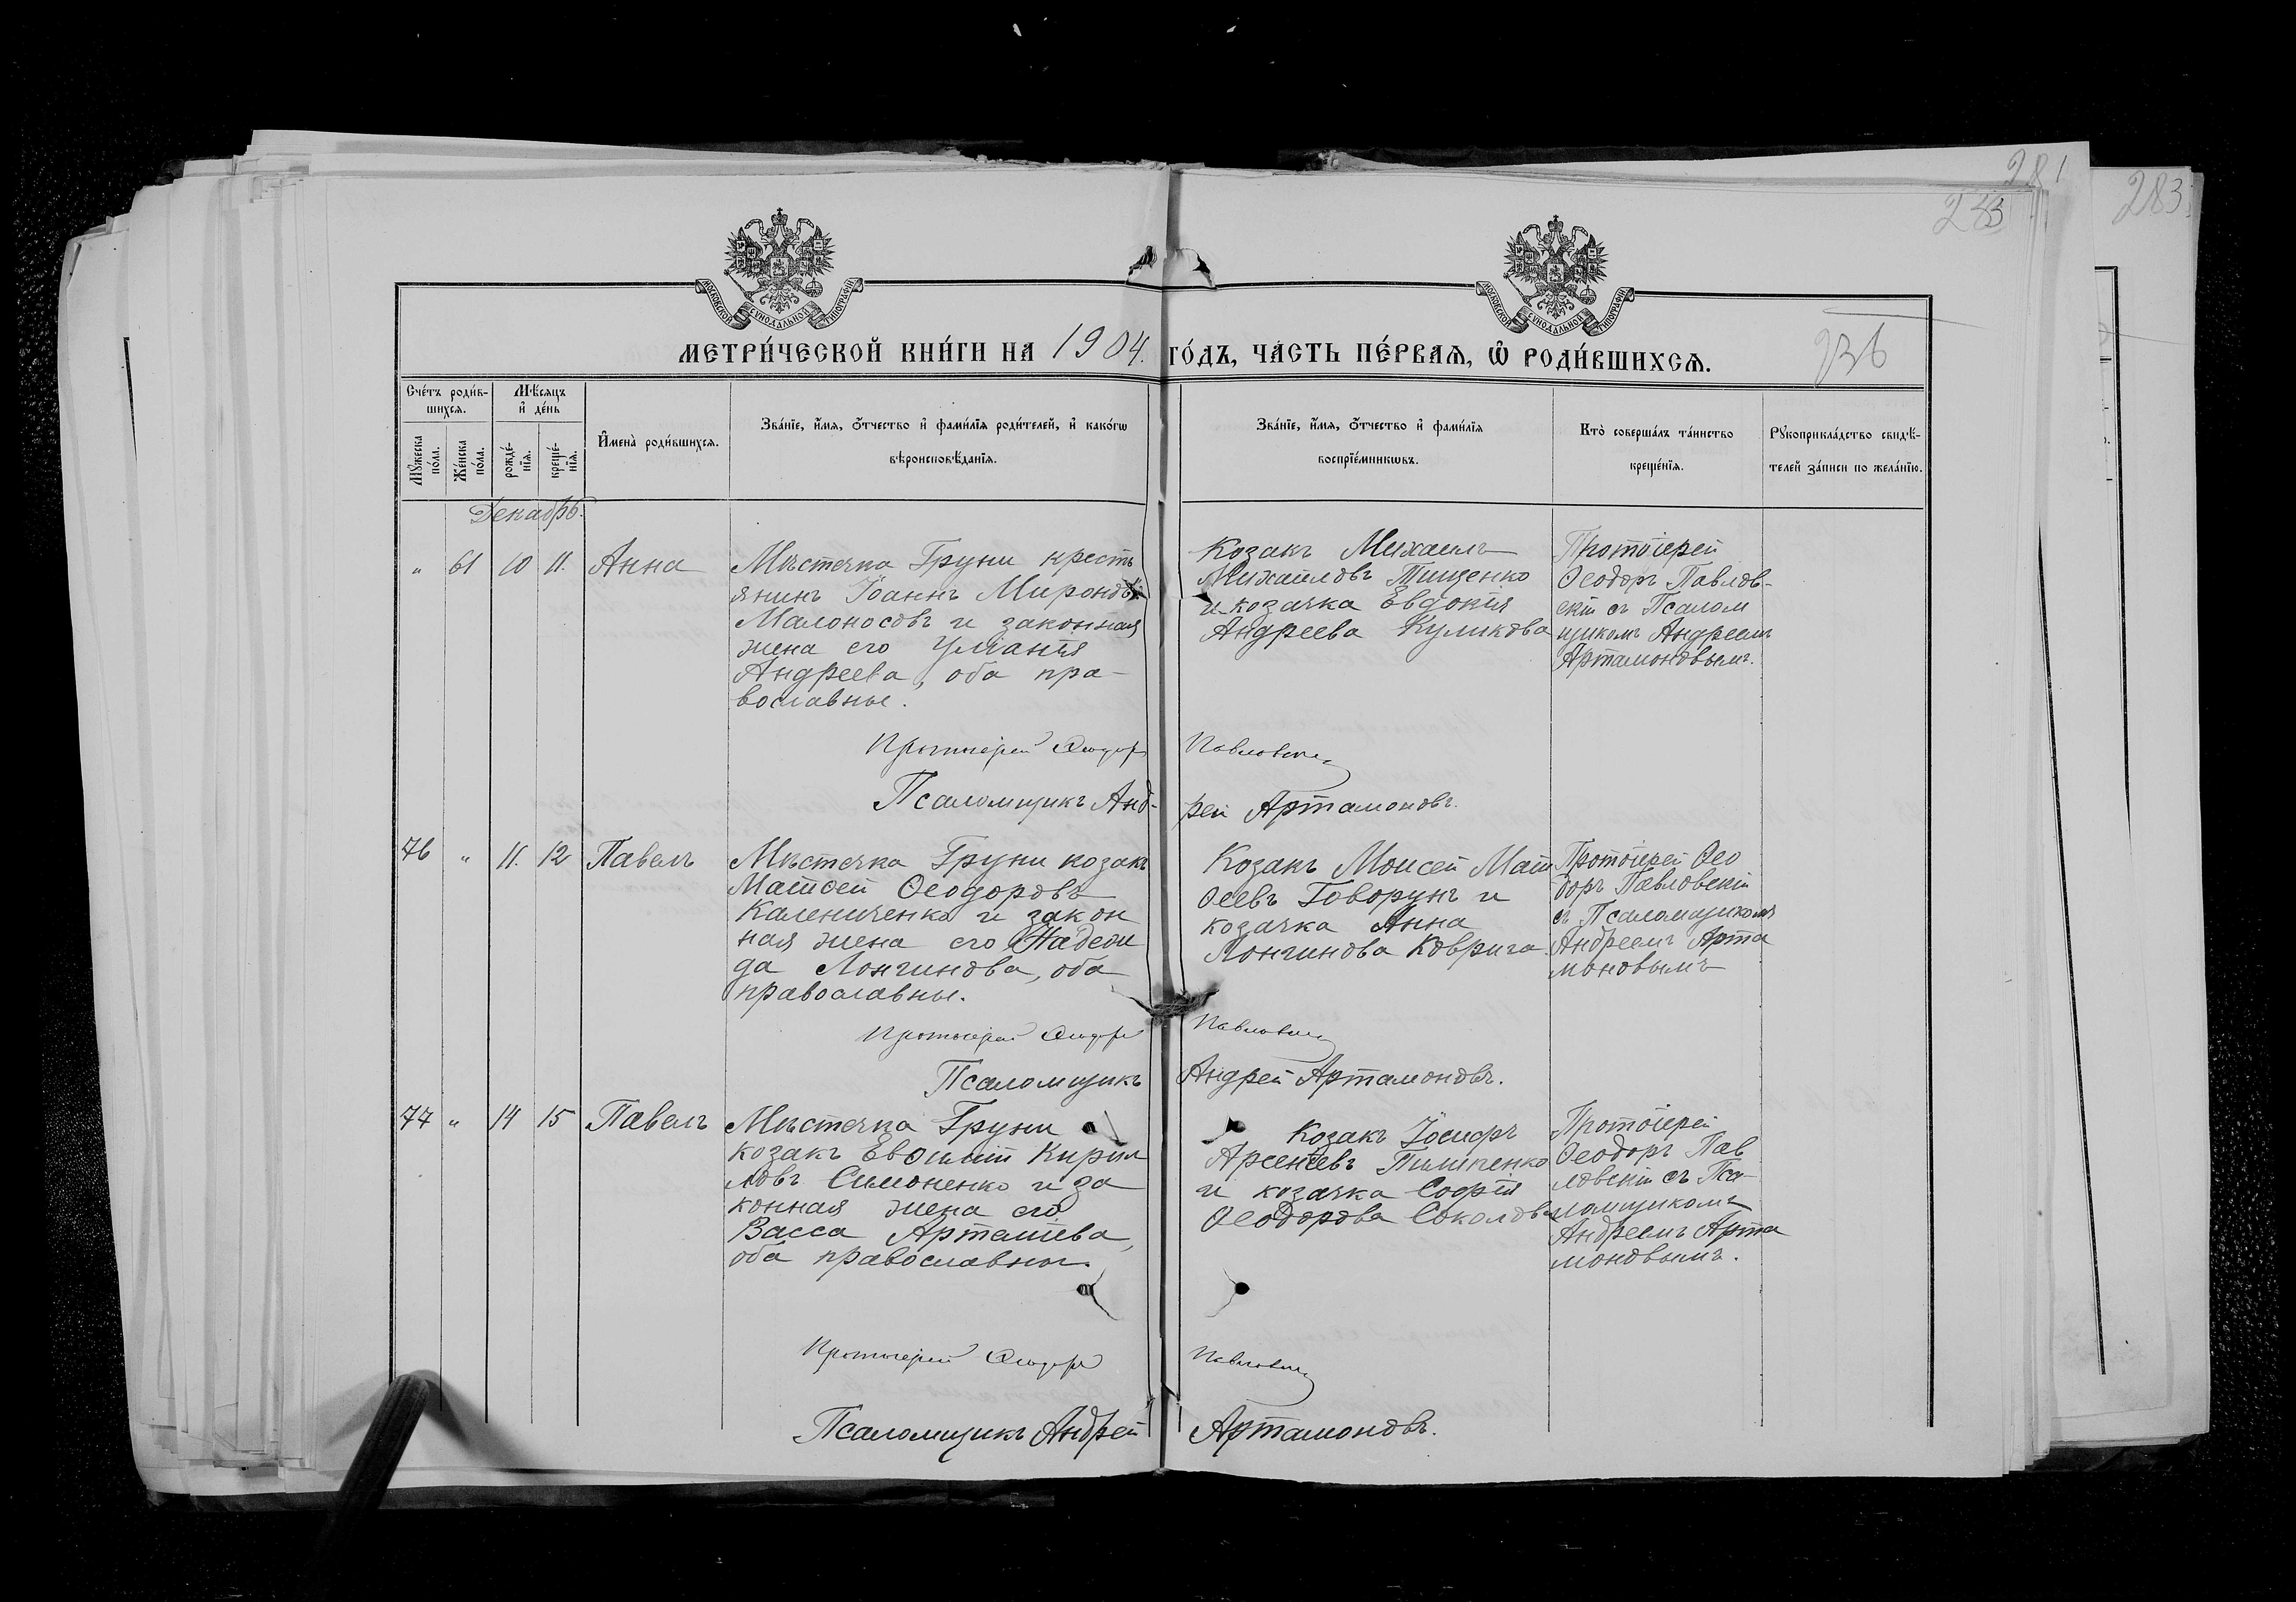 281
283
283
МОСКОВСКОЙ СѴНОДАЛЬНОЙ ТИПОГРАФІИ
МОСКОВСКОЙ СѴНОДАЛЬНОЙ ТИПОГРАФІИ
МЕТРИ́ЧЕСКОЙ КНИ́ГИ НА 1904. ГО́ДЪ, ЧА́СТЬ ПЕ́РВАѦ, Ѿ РОДИ́ВШИХСѦ.
236
Сче́тъ роди́в-
шихсѧ.
Мѣ́сѧцъ
и҆ де́нь
Мꙋ́жеска
по́ла.
Же́нска
по́ла.
рожде́-
нїѧ.
креще́-
нїѧ.
И҆мена̀ роди́вшихсѧ.
Зва́нїе, и҆́мѧ, ѻ҆́тчество и҆ фами́лїѧ роди́телей, и҆ како́гѡ
вѣроисповѣ́данїѧ.
Зва́нїе, и҆́мѧ, ѻ҆́тчество и҆ фами́лїѧ
воспрїе́мникѡвъ.
Кто̀ соверша́лъ та́инство
креще́нїѧ.
Рꙋкоприкла́дство свидѣ́-
телей за́писи по жела́нїю.
Декабрь.
" 61 10 11. Анна
Мѣстечка Груни кресть
янинъ Іоаннъ Мироновъ
Малоносовъ и законная
жена его Уліанія
Андреева, оба пра-
вославные.
Козакъ Михаилъ
Михайловъ Тищенко
и козачка Евдокія
Андреева Куликова
Протоіерей
Ѳеодоръ Павлов-
скій съ Псалом
щикомъ Андреемъ
Артамоновымъ.
Протоіерей Ѳеодоръ Павловскій
Псаломщикъ Анд-рей Артамоновъ.
76 " 11. 12 Павелъ
Мѣстечка Груни козакъ
Матѳей Ѳеодоровъ
Калениченко и закон
ная жена его Надеж
да Лонгинова, оба
православны.
Козакъ Моисей Мат
ѳеевъ Говорунъ и
козачка Анна
Лонгинова Коврига.
Протоіерей Ѳео
доръ Павловскій
съ Псаломщикомъ
Андреемъ Арта
моновымъ
Протоіерей Ѳеодоръ Павловскій
Псаломщикъ Андрей Артамоновъ.
77 " 14 15 Павелъ
Мѣстечка Груни
козакъ Евѳимій Кирил
ловъ Симоненко и за
конная жена его
Васса Арташева,
оба православны.
Козакъ Іосифъ
Арсеніевъ Пилипенко
и козачка Софія
Ѳеодорова Соколова
Протоіерей
Ѳеодоръ Пав
ловскій съ Пса-
ломщикомъ
Андреемъ Арта
моновымъ.
Протоіерей Ѳеодоръ Павловскій
Псаломщикъ Андрей Артамоновъ.